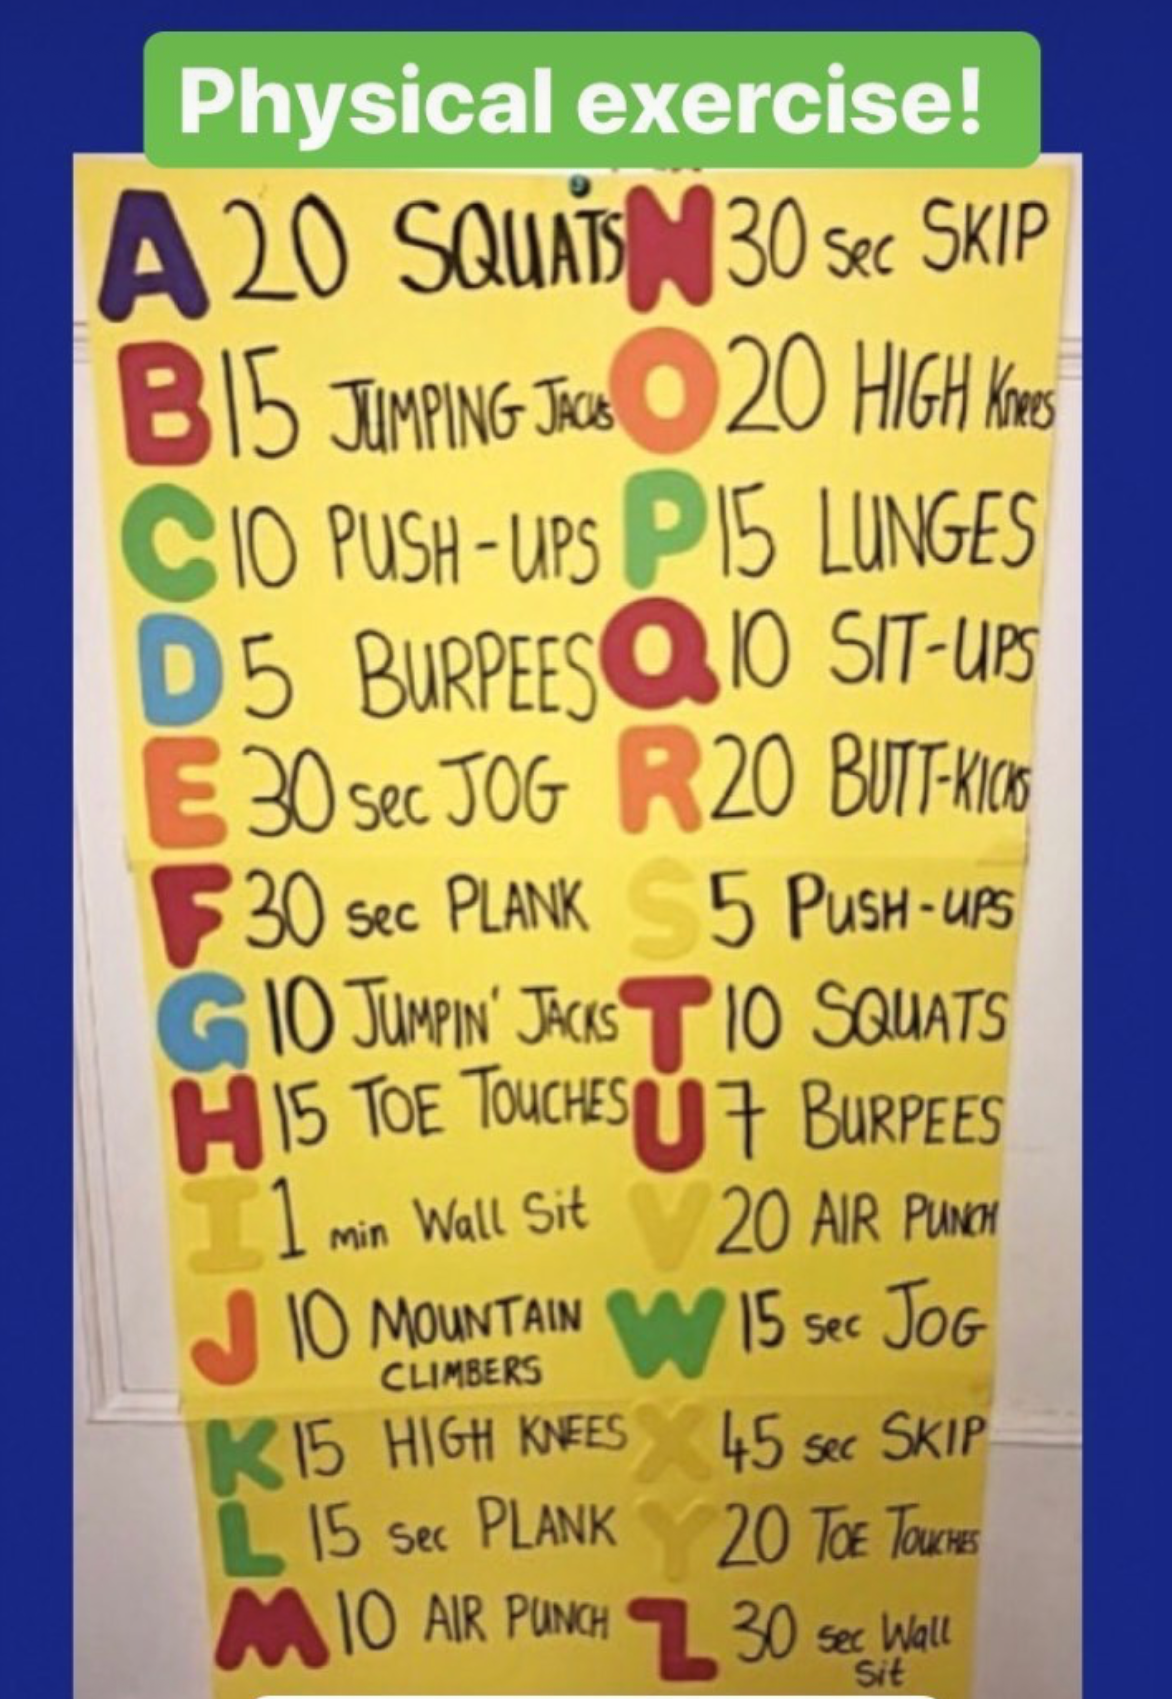 Physical exercise!
A 20 SQUATS
B 15 JUMPING JACKS
C 10 PUSH-UPS
D 5 BURPEES
E 30 sec JOG
F 30 sec PLANK
G 10 JUMPIN' JACKS
H 15 TOE TOUCHES
I 1 min Wall Sit
J 10 MOUNTAIN
CLIMBERS
K 15 HIGH KNEES
L 15 sec PLANK
M 10 AIR PUNCH
N 30 sec SKIP
O 20 HIGH Knees
P 15 LUNGES
Q 10 SIT-UPS
R 20 BUTT-KICKS
S 5 PUSH-UPS
T 10 SQUATS
U 7 BURPEES
V 20 AIR PUNCH
W 15 sec JOG
X 45 sec SKIP
Y 20 TOE TOUCHES
Z 30 sec Wall
Sit